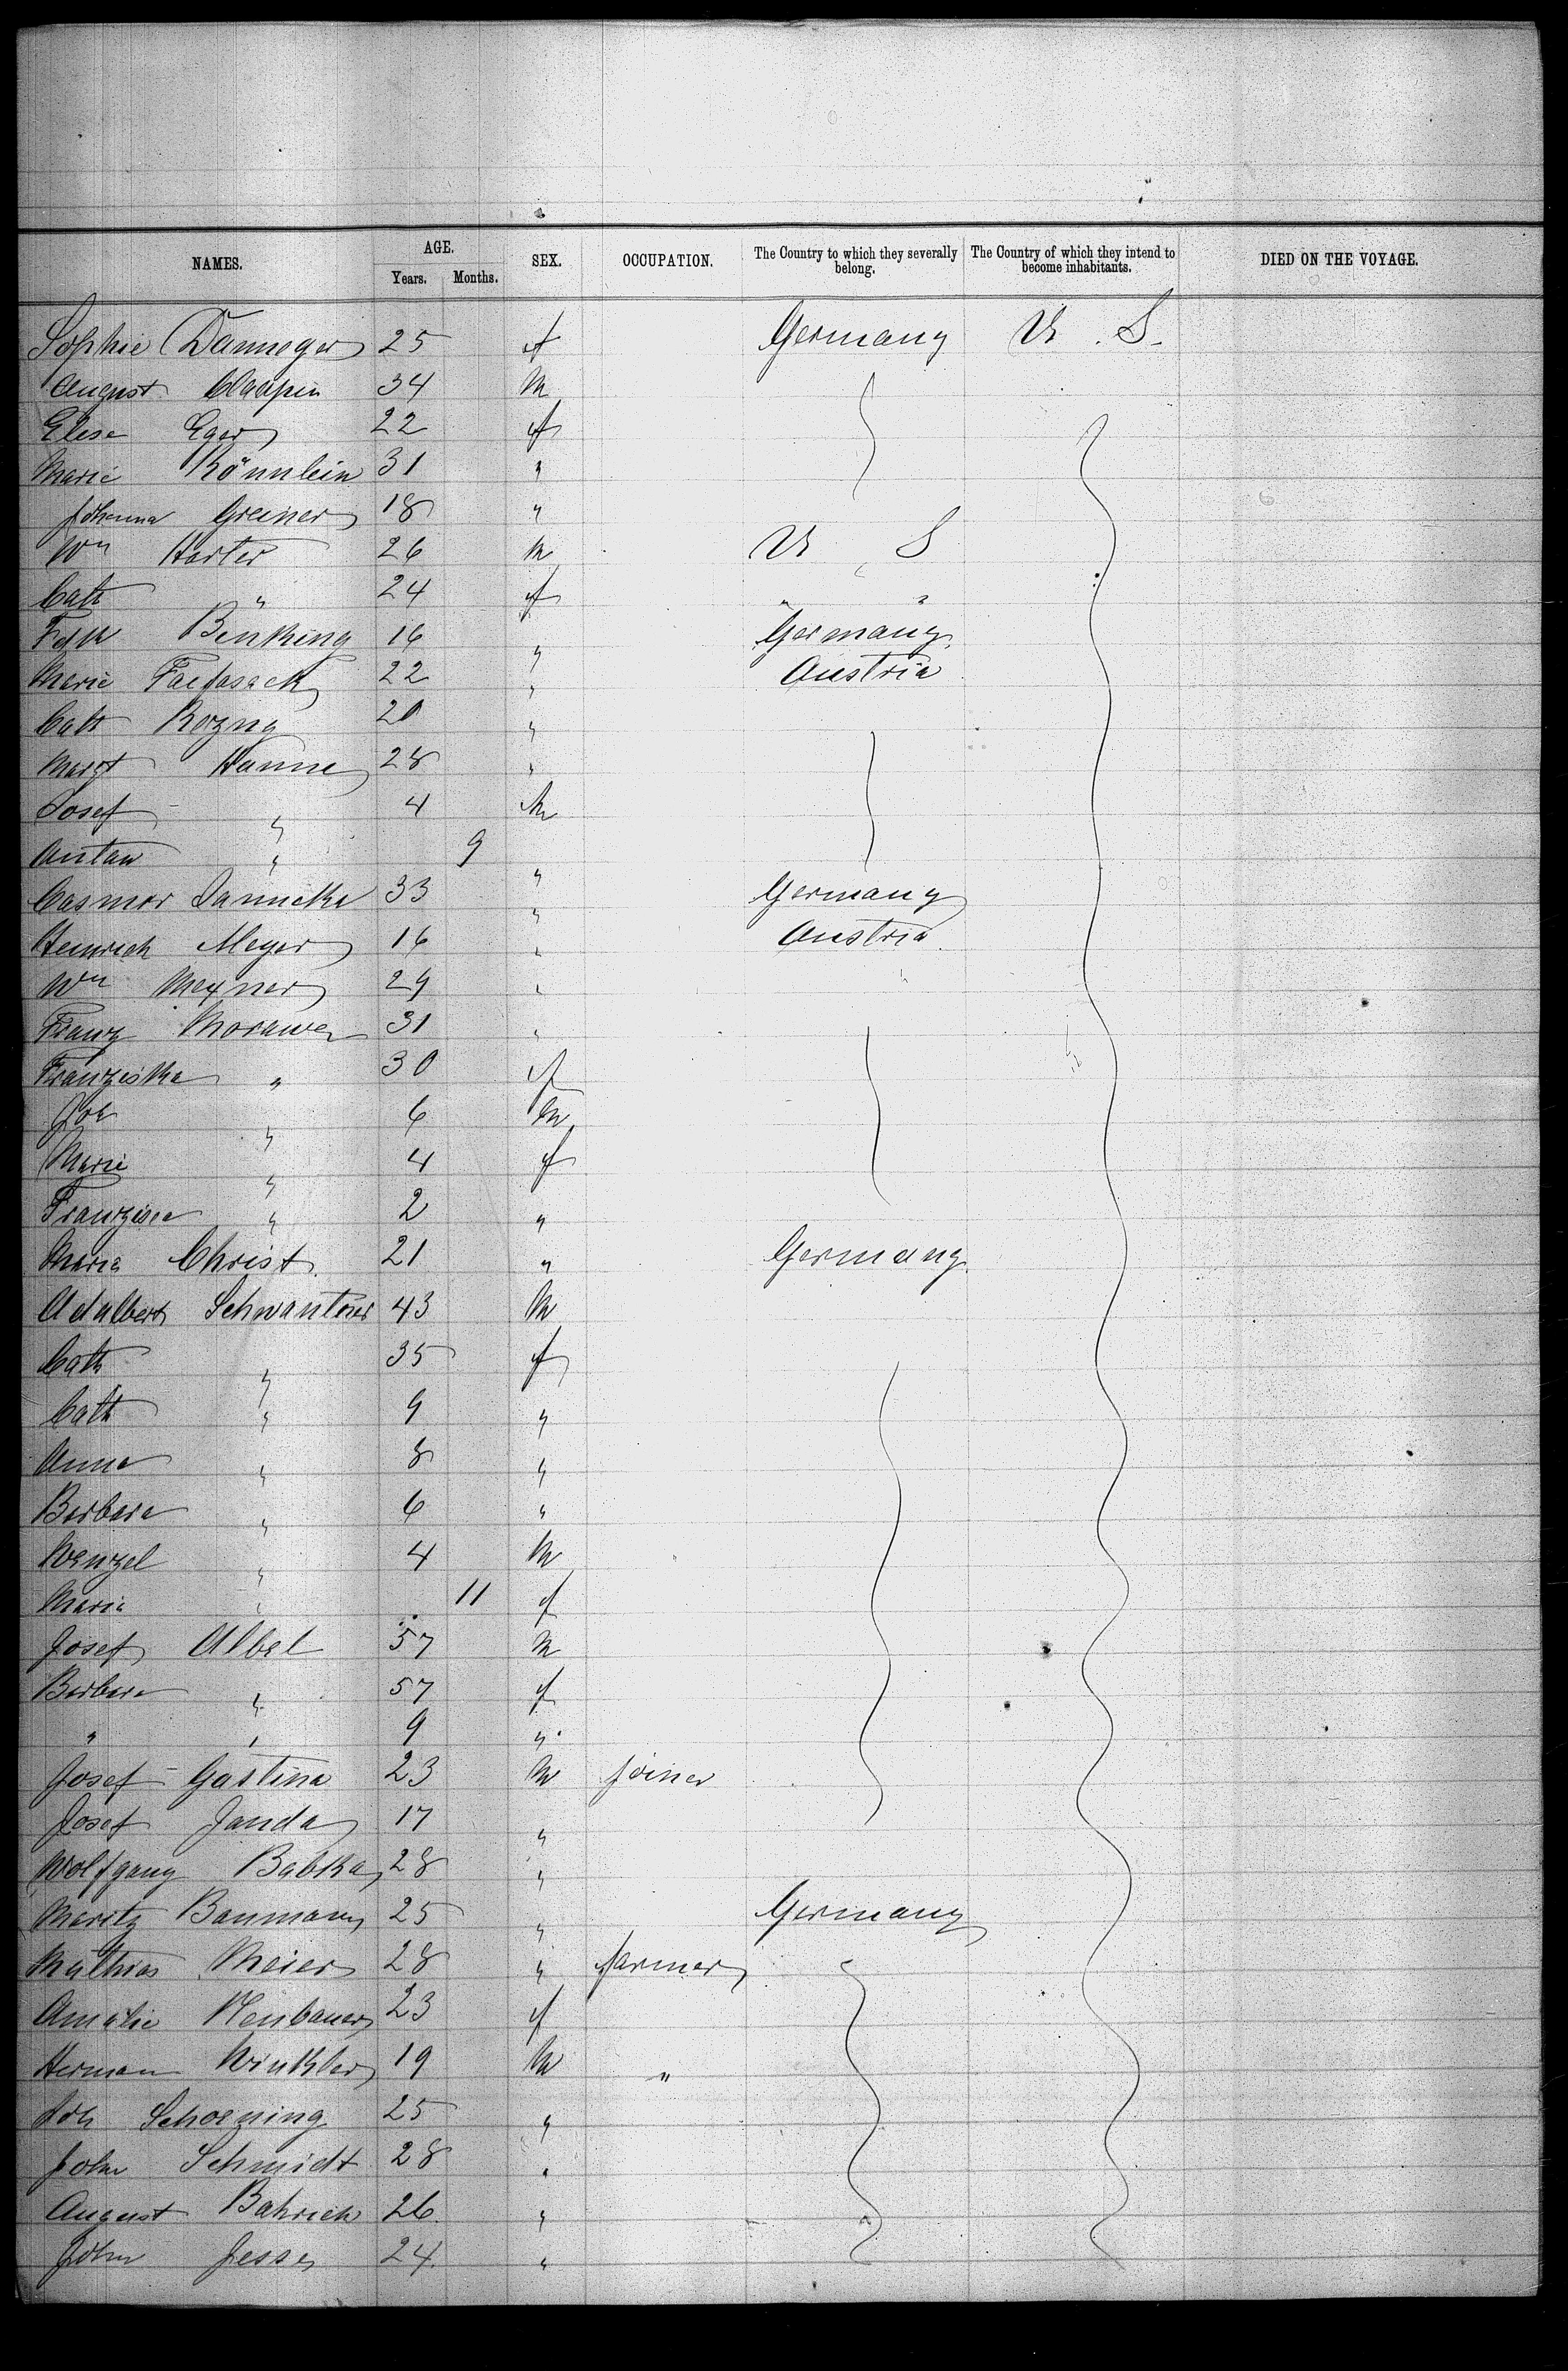 NAMES. AGE. SEX. OCCUPATION. The Country to which they severally belong. The Country of which they intend to become inhabitants. DIED ON THE VOYAGE.
Years. Months.
Sophie 25 f Germany U. S.
August 34 m
Elise Eger 22 f
Marie Rönnlein 31 "
Johanna Greiner 18 "
Wm Harter 26 m U S
Cath " 24 f " "
Benking 16 " Germany
Marie 22 " Austria
Cath Rozny 20 "
Margt Hanne 28 "
Josef " 4 m
Anton " 9 "
Casmor Jannicka 33 " Germany
Heinrich Meyer 16 " Austria
Wm Mexner 29 "
Franz Morawez 31 "
Franziska " 30 f
Joh " 6 m
Marie " 4 f
Franzisca " 2 "
Maria Christ 21 " Germany
Adalbert Schwantner 43 m
Cath " 35 f
Cath " 9 "
Anna " 8 "
Barbara " 6 "
Wenzel " 4 m
Maria " 11 f
Josef Albel 57 m
Barbara " 57 f
" " 9 "
Josef Gastina 23 m joiner
Josef Janda 17 "
Wolfgang Babka 28 "
Moritz Baumann 25 " Germany
Mathias Meier 28 " farmer
Amalie Neubauer 23 f
Herman Winkler 19 m "
Joh Schoening 25 "
John Schmidt 28 "
August Bahrich 26 "
John Jesse 24 "